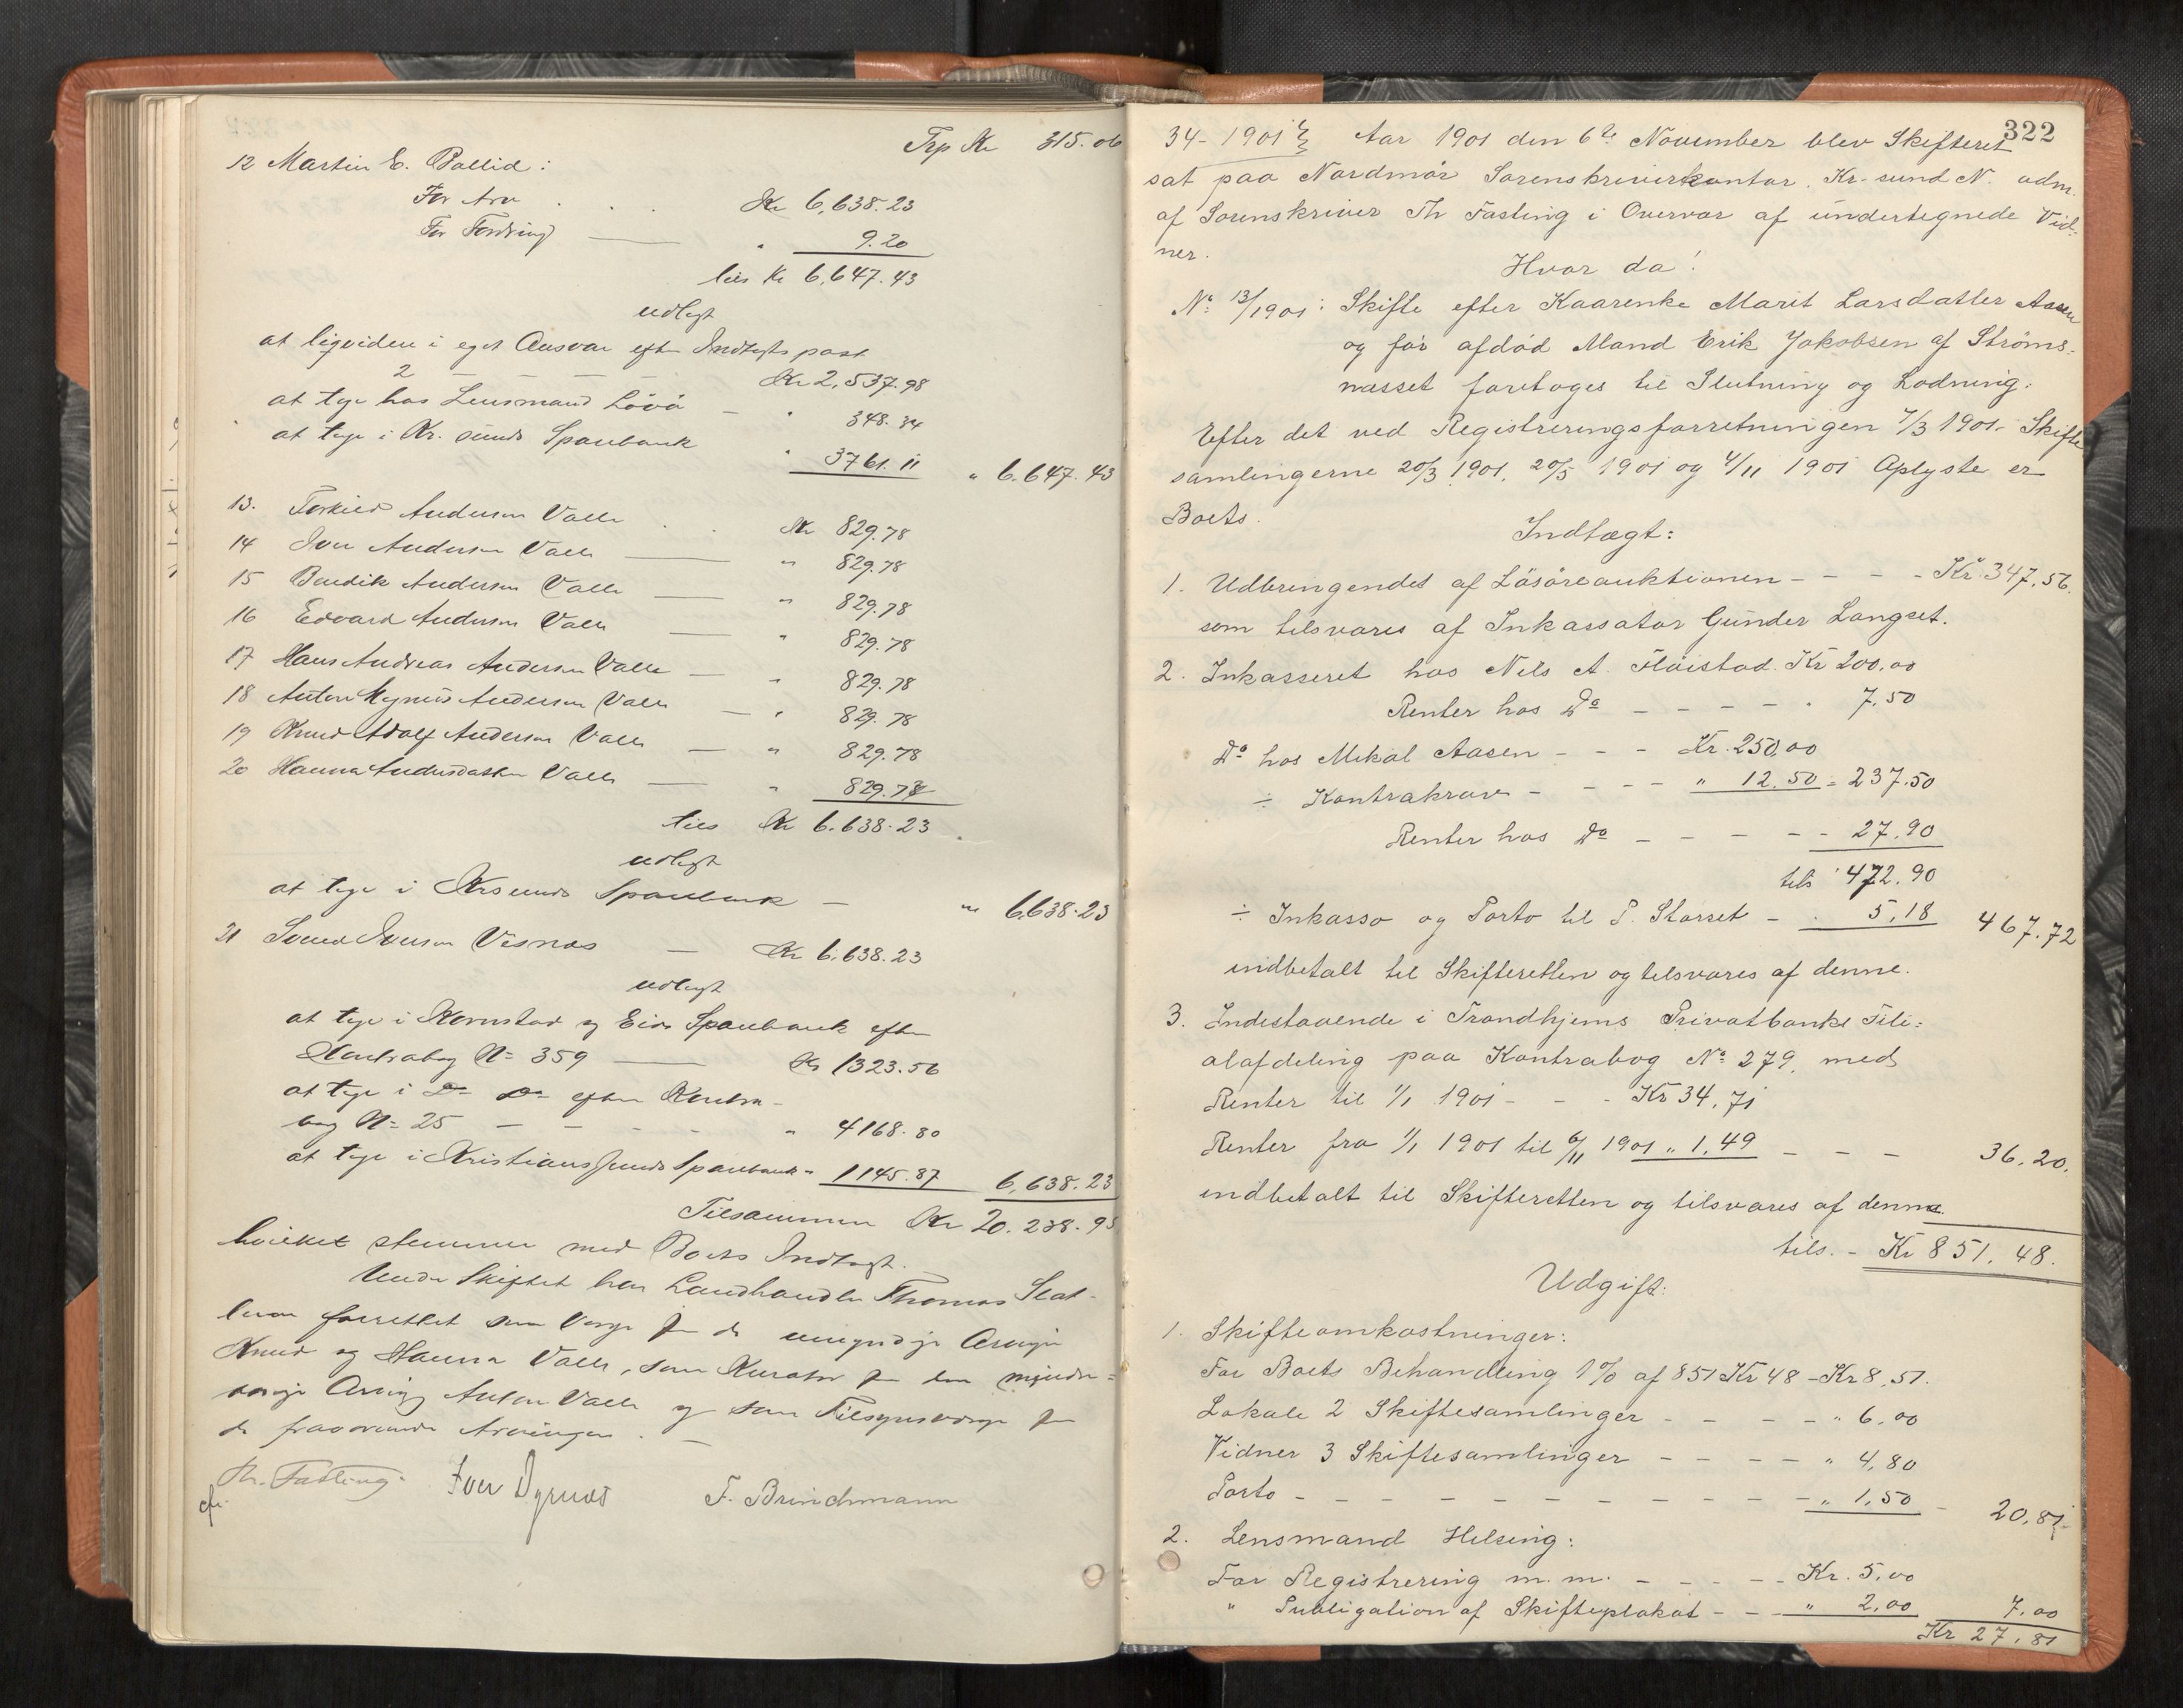 Trp Kr 315.06
12 Martin E. Bollid:
For Arv . . . Kr 6,638.23
For Fordring — " 9.20
tils Kr 6,647.43
udlagt
at liqvidere i eget Ansvar efter Indtægtspost
2 — — — — — Kr 2,537.98
at tage hos Lensmand Lövö — " 348.34
at tage i Kr. sunds Sparebank " 3761.11 " 6.647.43
13. Torkild Andersen Valle . . Kr 829.78
14 Iver Andersen Valle — " 829.78
15 Bendik Andersen Valle — " 829.78
16 Edvard Andersen Valle — " 829.78
17 Hans Andreas Andersen Valle — " 829.78
18 Anton Magnus Andersen Valle — " 829.78
19 Knud Adolf Andersen Valle — " 829.78
20 Hanna Andersdatter Valle — " 829.77
tils Kr 6.638.23
udlagt
at tage i Krsunds Sparebank — " 6,638.23
21 Svend Iversen Visnæs — Kr 6.638.23
udlagt
at tage i Kornstad og Eide Sparebank efter
Kontrabog No 359 — Kr 1323.56
at tage i Do Do efter Kontra-
bog No 25 — — — — " 4168.80
at tage i Kristianssunds Sparebank " 1145.87 6,638.23
Tilsammen Kr 20.238.95
hvilket stemmer med Boets Indtægt.
Under Skiftet har Landhandler Thomas Slat-
lem forrettet som Verge for de umyndige Arvinger
Knud og Hanna Valle, som Kurator for den mindre=
aarige Arving Anton Valle og som Tilsynsverge for
de fraværende Arvinger. —
Th. Fasting. Iver Dyrnes F. Brinchmann
cfr.
322
34-1901 Aar 1901 den 6te November blev Skifteret
sat paa Nordmör Sorenskriverkontor, Kr-sund N. adm.
af Sorenskriver Th Fasting i Overvær af undertegnede Vid-
ner.
Hvor da!
No 13/1901: Skifte efter Kaarenke Marit Larsdatter Aasen
og før afdød Mand Erik Jakobsen af Ströms=
næsset foretoges til Slutning og Lodning.
Efter det ved Registreringsforretningen 7/3 1901- Skifte
samlingerne 20/3 1901, 20/5 1901 og 4/11 1901 Oplyste er
Boets.
Indtægt:
1. Udbringendet af Lösöreauktionen - - - - Kr. 347,56.
som tilsvares af Inkassator Gunder Langset.
2. Inkasseret hos Nils A. Flöistad. Kr 200,00
Renter hos Do - - - - - " 7,50
Do hos Mikal Aasen - - - Kr. 250,00
÷ Kontrakrav - - - - " 12,50 = 237.50
Renter hos Do - - - - - 27,90
tils 472,90
÷ Inkasso og Porto til P. Storset - " 5,18 467.72
indbetalt til Skifteretten og tilsvares af denne.
3. Indestaaende i Trondhjems Privatbanks Fili=
alafdeling paa Kontrabog No 279, med
Renter til 1/1 1901 - - - Kr 34,71
Renter fra 1/1 1901 til 6/11 1901 " 1,49 - - - 36,20.
indbetalt til Skifteretten og tilsvares af denne.
tils. - Kr 851,48.
Udgift:
1. Skifteomkostninger:
For Boets Behandling 1% af 851 Kr 48 - Kr 8,51.
Lokale 2 Skiftesamlinger - - - - " 6,00
Vidner 3 Skiftesamlinger - - - - " 4,80
Porto - - - - - - - - - - - " 1,50 - 20,81
2. Lensmand Helsing:
For Registrering m.m. - - - - Kr. 5,00
" Publigation af Skifteplakat - - - " 2,00 7,00
Kr 27,81